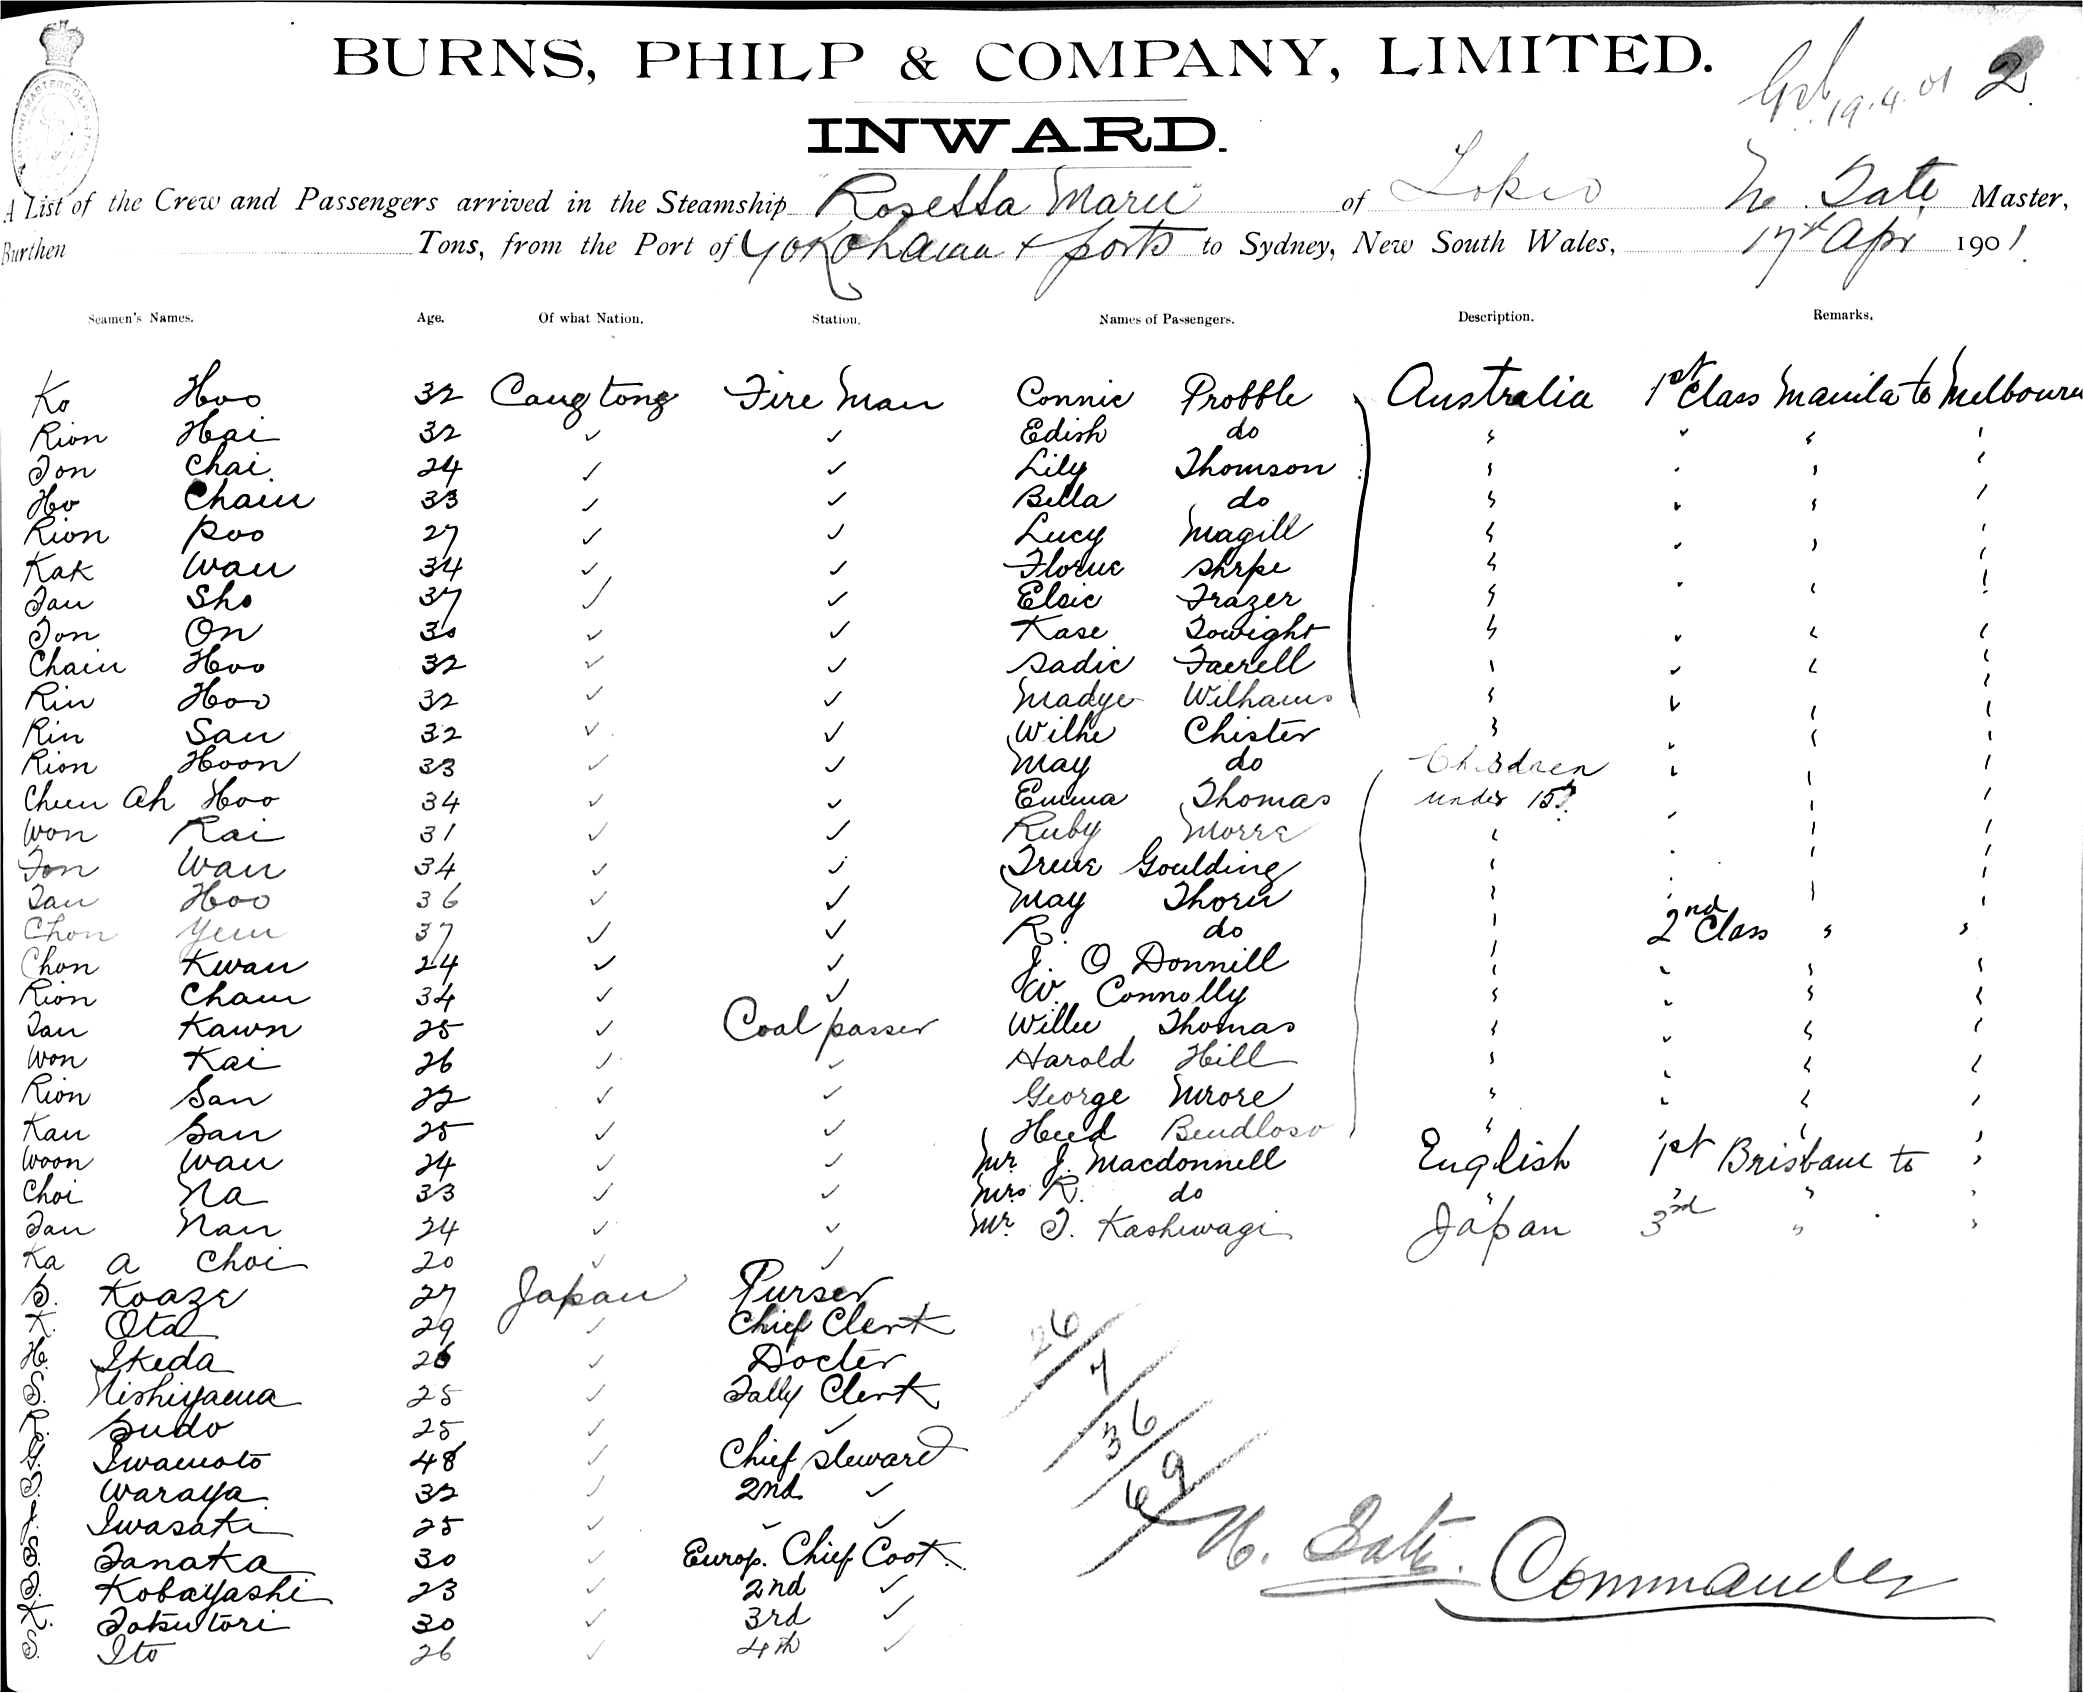 BURNS, PHILP & COMPANY, LIMITED.
19.4.01 2
INWARD.
A List of the Crew and Passengers arrived in the Steamship "Rosetta Maru" of Tokio N. Tate Master,
Burthen Tons, from the Port of Yokohama + ports to Sydney, New South Wales, 17th Apr 1901
Seamen's Names. Age. Of what Nation. Station. Names of Passengers. Description. Remarks.
Ko Hoo 32 Cangtong Fire Man Connie Probble Australia 1st Class Manila to Melbourn
Rion Hai 32 ✓ ✓ Edish do
Ton Chai 24 ✓ ✓ Lily Thomson
Ho Cham 33 ✓ ✓ Bella do
Rion Poo 27 ✓ ✓ Lucy Magill
Kak Wan 34 ✓ ✓ Florue Shrpe
Tan Sho 37 ✓ ✓ Elsie Frazer
Ton On 30 ✓ ✓ Kase Towight
Chain Hoo 32 ✓ ✓ Sadie Faerell
Rin Hoo 32 ✓ ✓ Madye Williams
Rin San 32 ✓ ✓ Willie Chister
Rion Hoon 33 ✓ ✓ May do Children
Chun Ah Hoo 34 ✓ ✓ Emma Thomas under 15?
Won Rai 31 ✓ ✓ Ruby Morre
Ton Wan 34 ✓ ✓ Irene Goulding
Tan Hoo 36 ✓ ✓ May Thorn
Chon Yem 37 ✓ ✓ R. do 2nd Class
Chon Kwan 24 ✓ ✓ J. O Donnill
Rion Cham 34 ✓ ✓ W. Connolly
Tan Kawn 25 ✓ Coal passer Willie Thomas
Won Kai 26 ✓ ✓ Harold Hill
Rion San 22 ✓ ✓ George Mrore
Kan San 25 ✓ ✓ Heed Bendloso
Woon Wan 24 ✓ ✓ Mr. J. Macdonnell English 1st Brisbane to
Choi Na 33 ✓ ✓ Mrs R. do
Tan Nan 24 ✓ ✓ Mr. T. Kashiwagi Japan 3rd
Ka a Choi 20 ✓ ✓
S. Koaze 27 Japan Purser
K. Ota 29 ✓ Chief Clerk 26
H. Ikeda 26 ✓ Docter 7
S. Nishiyama 25 ✓ Tally Clerk
R. Sudo 25 ✓ ✓ 36
Y. Iwamoto 48 ✓ Chief Steward 69
S. Waraya 32 ✓ 2nd ✓
J. Iwasaki 25 ✓ ✓ ✓
S. Tanaka 30 ✓ Europ. Chief Cook. N. Tate. Commander
S. Kobayashi 23 ✓ 2nd ✓
K. Totsutori 30 ✓ 3rd ✓
S. Ito 26 ✓ 4th ✓